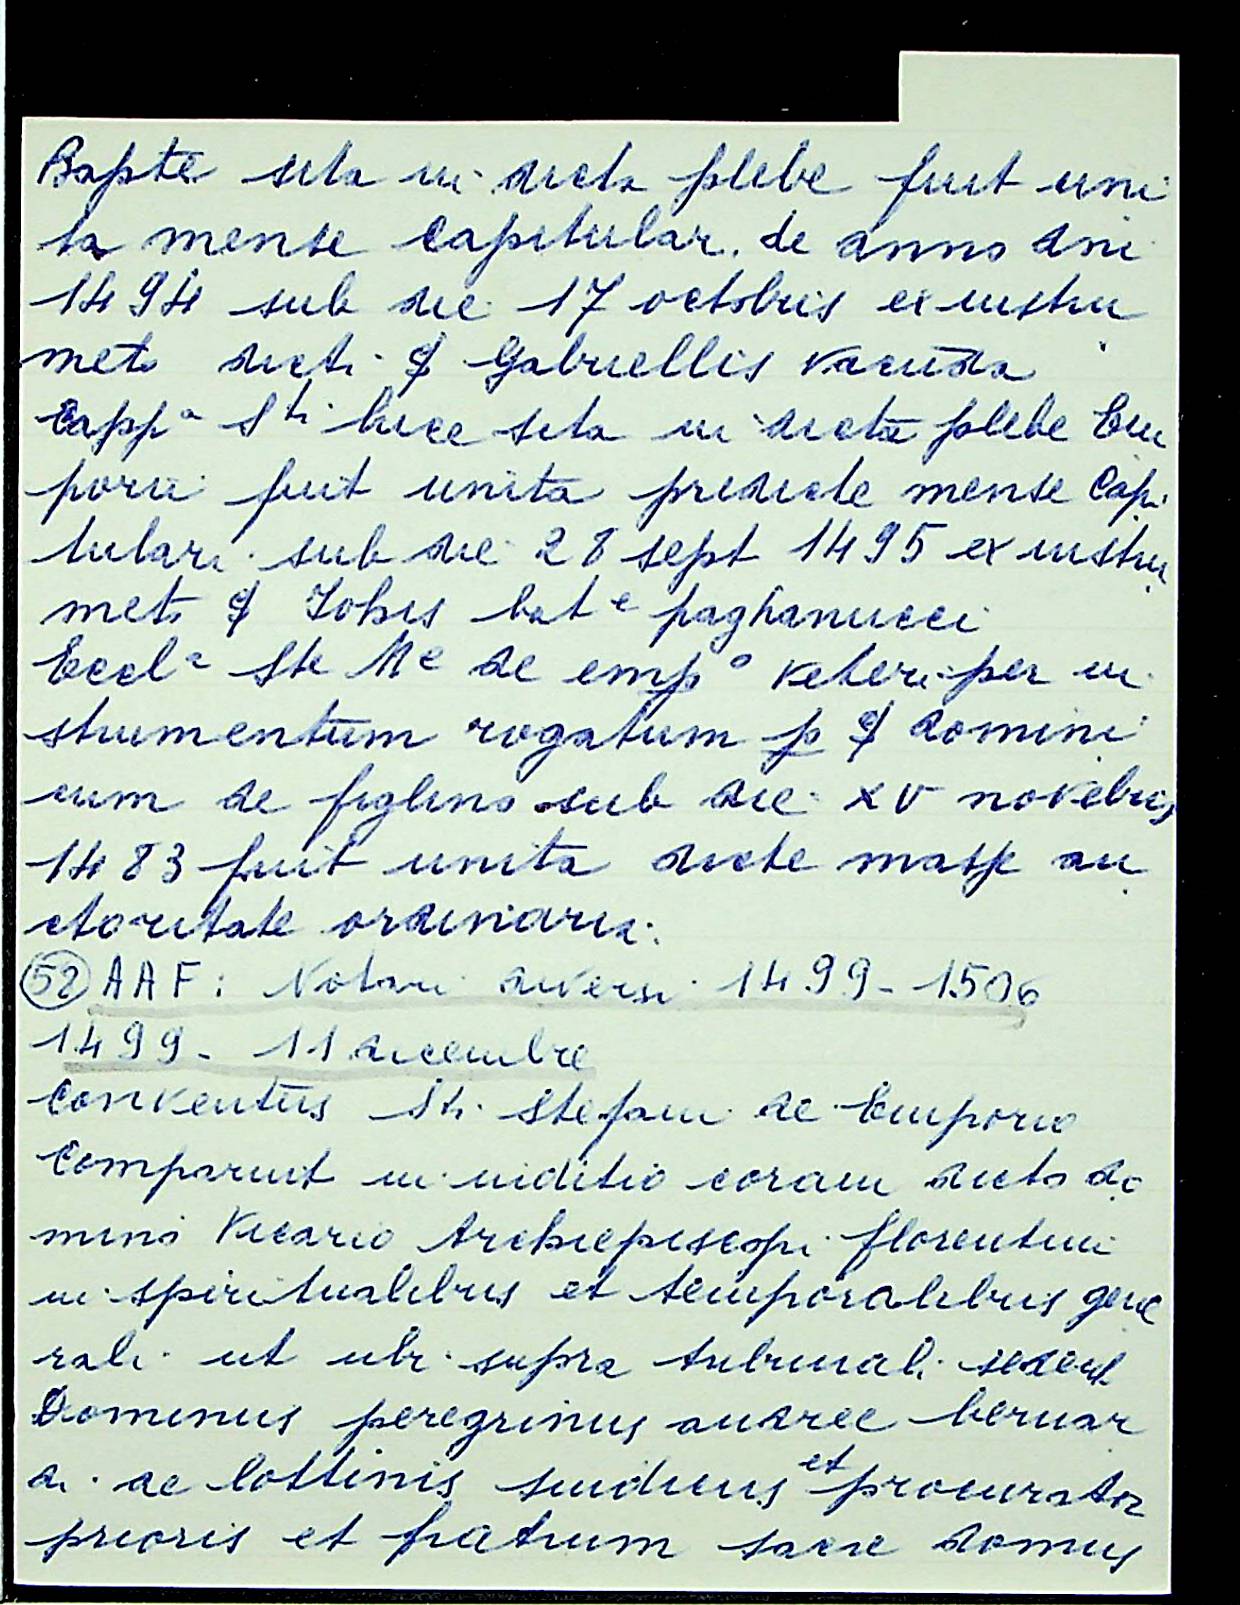 Bapte sita in dicta plebe fuit uni
ta mense capitular. de anno dni
1494 sub die 17 octobris ex instru
meto dicti § Gabriellis vacuda
Cappa Sti luce sita in dicta plebe Em
porii fuit unita predicte mense Capi
tulari sub die 28 sept 1495 ex instru
meto § Iohis bate paghanucci
Eccla Ste Me de empo veteri per in
strumentum rogatum p § domini
cum de figlino sub die xv novebris
1483 fuit unita dicte mass au
ctoritate ordinaria.
(52) AAF: Notari diversi 1499-1506
1499 - 11 dicembre
Conventus Sti Stefani de Emporio
Comparuit in iuditio coram dicto do
mino Vicario Archiepiscopi florentini
in spiritualibus et temporalibus gene
rali ut ubi supra tribunali sedent
Dominus peregrinus andree bernar
di de lottinis sindicus et procurator
prioris et fratrum sacre domus